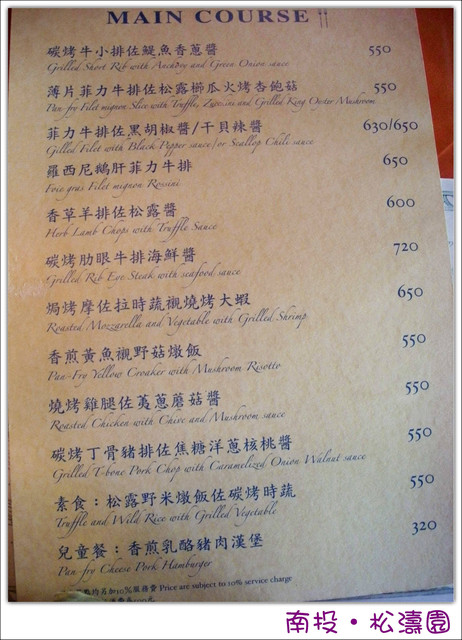 MAIN COURSE
碳烤牛小排佐鯷魚香蔥醬 550
Grilled Short Rib with Anchovy and Green Onion sauce
薄片菲力牛排佐松露櫛瓜火烤杏鮑菇 550
Pan-fry Filet mignon Slice with Truffle, Zuccini and Grilled King Oyster Mushroom
菲力牛排佐黑胡椒醬/干貝辣醬 630/650
Gilled Filet with Black Pepper sauce/or Scallop Chili sauce
羅西尼鵝肝菲力牛排 650
Foie gras Filet mignon Rossini
香草羊排佐松露醬 600
Herb Lamb Chops with Truffle Sauce
碳烤肋眼牛排海鮮醬 720
Grilled Rib Eye Steak with seafood sauce
焗烤摩佐拉時蔬襯燒烤大蝦 650
Roasted Mozzarella and Vegetable with Grilled Shrimp
香煎黃魚襯野菇燉飯 550
Pan-Fry Yellow Croaker with Mushroom Risotto
燒烤雞腿佐夷蔥蘑菇醬 550
Roasted Chicken with Chive and Mushroom sauce
碳烤丁骨豬排佐焦糖洋蔥核桃醬 550
Grilled T-bone Pork Chop with Caramelized Onion Walnut sauce
素食：松露野米燉飯佐碳烤時蔬 550
Truffle and Wild Rice with Grilled Vegetable
兒童餐：香煎乳酪豬肉漢堡 320
Pan-fry Cheese Pork Hamburger
均另加10%服務費 Price are subject to 10% service charge
南投·松濤園